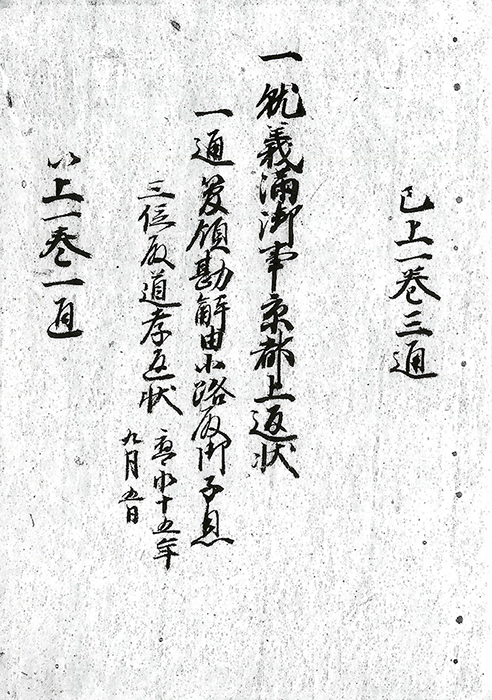 已上一巻三通
一就義満御事京都上返状
一通管領勘解由小路殿御子息
三位殿道孝返状 応永十五年
九月五日
以上一巻一通